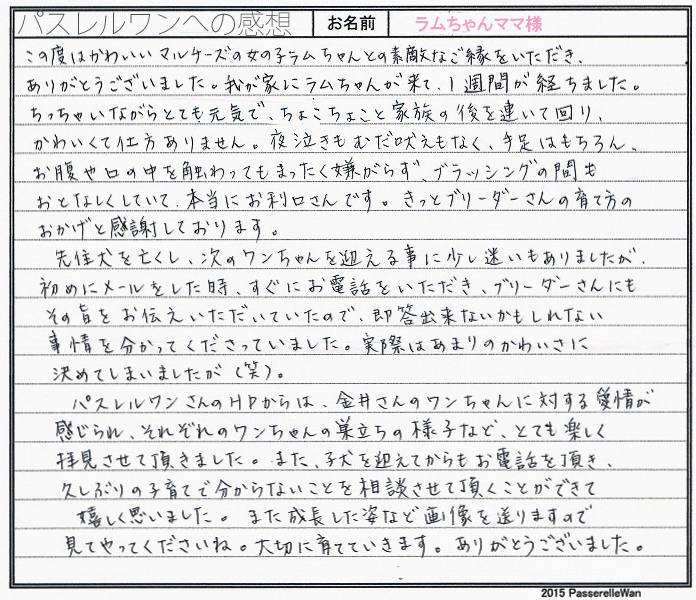 パスレルワンへの感想 お名前 ラムちゃんママ様
この度はかわいいマルチーズの女の子ラムちゃんとの素敵なご縁をいただき、
ありがとうございました。我が家にラムちゃんが来て、1週間が経ちました。
ちっちゃいながらとても元気で、ちょこちょこと家族の後を連いて回り、
かわいくて仕方ありません。夜泣きもむだ吠えもなく、手足はもちろん、
お腹や口の中を触わってもまったく嫌がらず、ブラッシングの間も
おとなしくしていて、本当にお利口さんです。きっとブリーダーさんの育て方の
おかげと感謝しております。
先住犬を亡くし、次のワンちゃんを迎える事に少し迷いもありましたが、
初めにメールをした時、すぐにお電話をいただき、ブリーダーさんにも
その旨をお伝えいただいていたので、即答出来ないかもしれない
事情を分かってくださっていました。実際はあまりのかわいさに
決めてしまいましたが（笑）。
パスレルワンさんのHPからは、金井さんのワンちゃんに対する愛情が
感じられ、それぞれのワンちゃんの巣立ちの様子など、とても楽しく
拝見させて頂きました。また、子犬を迎えてからもお電話を頂き、
久しぶりの子育てで分からないことを相談させて頂くことができて
嬉しく思いました。また成長した姿など画像を送りますので
見てやってくださいね。大切に育てていきます。ありがとうございました。
2015 PasserelleWan